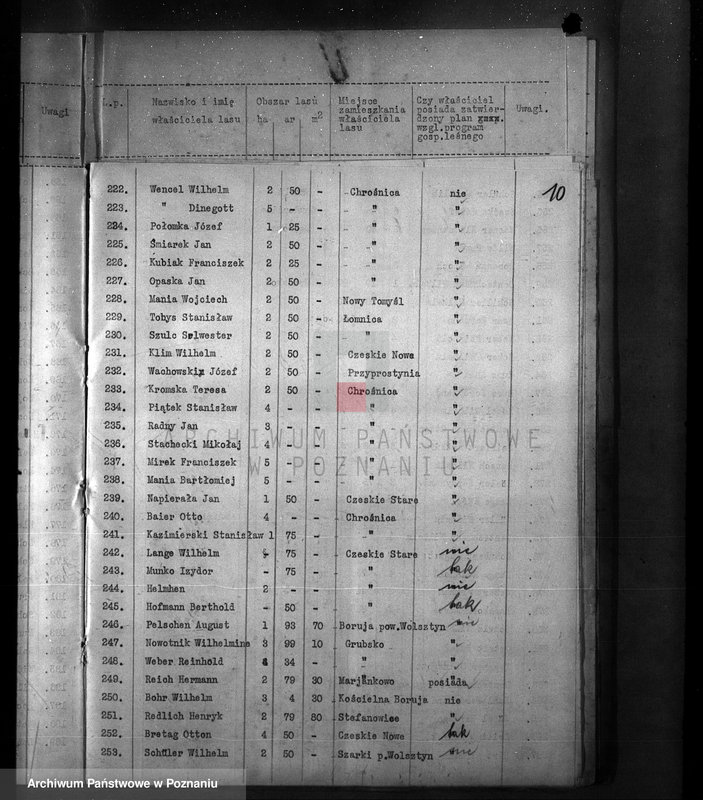 Uwagi
L.p. Nazwisko i imię właściciela lasu Obszar lasu ha ar m² Miejsce zamieszkania właściciela lasu Czy właściciel posiada zatwierdzony plan wzgl.program gosp.leśnego Uwagi.
10
222. Wencel Wilhelm 2 50 - Chrośnica nie
223. " Dinegott 5 - - " "
224. Połomka Józef 1 25 - " "
225. Śmiarek Jan 2 50 - " "
226. Kubiak Franciszek 2 25 - " "
227. Opaska Jan 2 50 - " "
228. Mania Wojciech 2 50 - Nowy Tomyśl "
229. Tobys Stanisław 2 50 - Łomnica "
230. Szulc Sylwester 2 50 - " "
231. Klim Wilhelm 2 50 - Czeskie Nowe "
232. Wachowski Józef 2 50 - Przyprostynia "
233. Kromska Teresa 2 50 - Chrośnica "
234. Piątek Stanisław 4 - - " "
235. Radny Jan 3 - - " "
236. Stachecki Mikołaj 4 - - " "
237. Mirek Franciszek 5 - - " "
238. Mania Bartłomiej 5 - - " "
239. Napierała Jan 1 50 - Czeskie Stare "
240. Baier Otto 4 - - Chrośnica "
241. Kazimierski Stanisław 1 75 - " "
242. Lange Wilhelm - 75 - Czeskie Stare nie
243. Munko Izydor - 75 - " tak
244. Helmhen 2 - - " nie
245. Hofmann Berthold - 50 - " tak
246. Pelschen August 1 93 70 Boruja pow.Wolsztyn nie
247. Nowotnik Wilhelmine 3 99 10 Grubsko "
248. Weber Reinhold 34 - " "
249. Reich Hermann 2 79 30 Marjankowo posiada
250. Bohr Wilhelm 3 4 30 Kościelna Boruja nie
251. Redlich Henryk 2 79 80 Stefanowice "
252. Bretag Otton 4 50 - Czeskie Nowe tak
253. Schüler Wilhelm 2 50 - Szarki p.Wolsztyn nie
ARCHIWUM PAŃSTWOWE
W POZNANIU
Archiwum Państwowe w Poznaniu